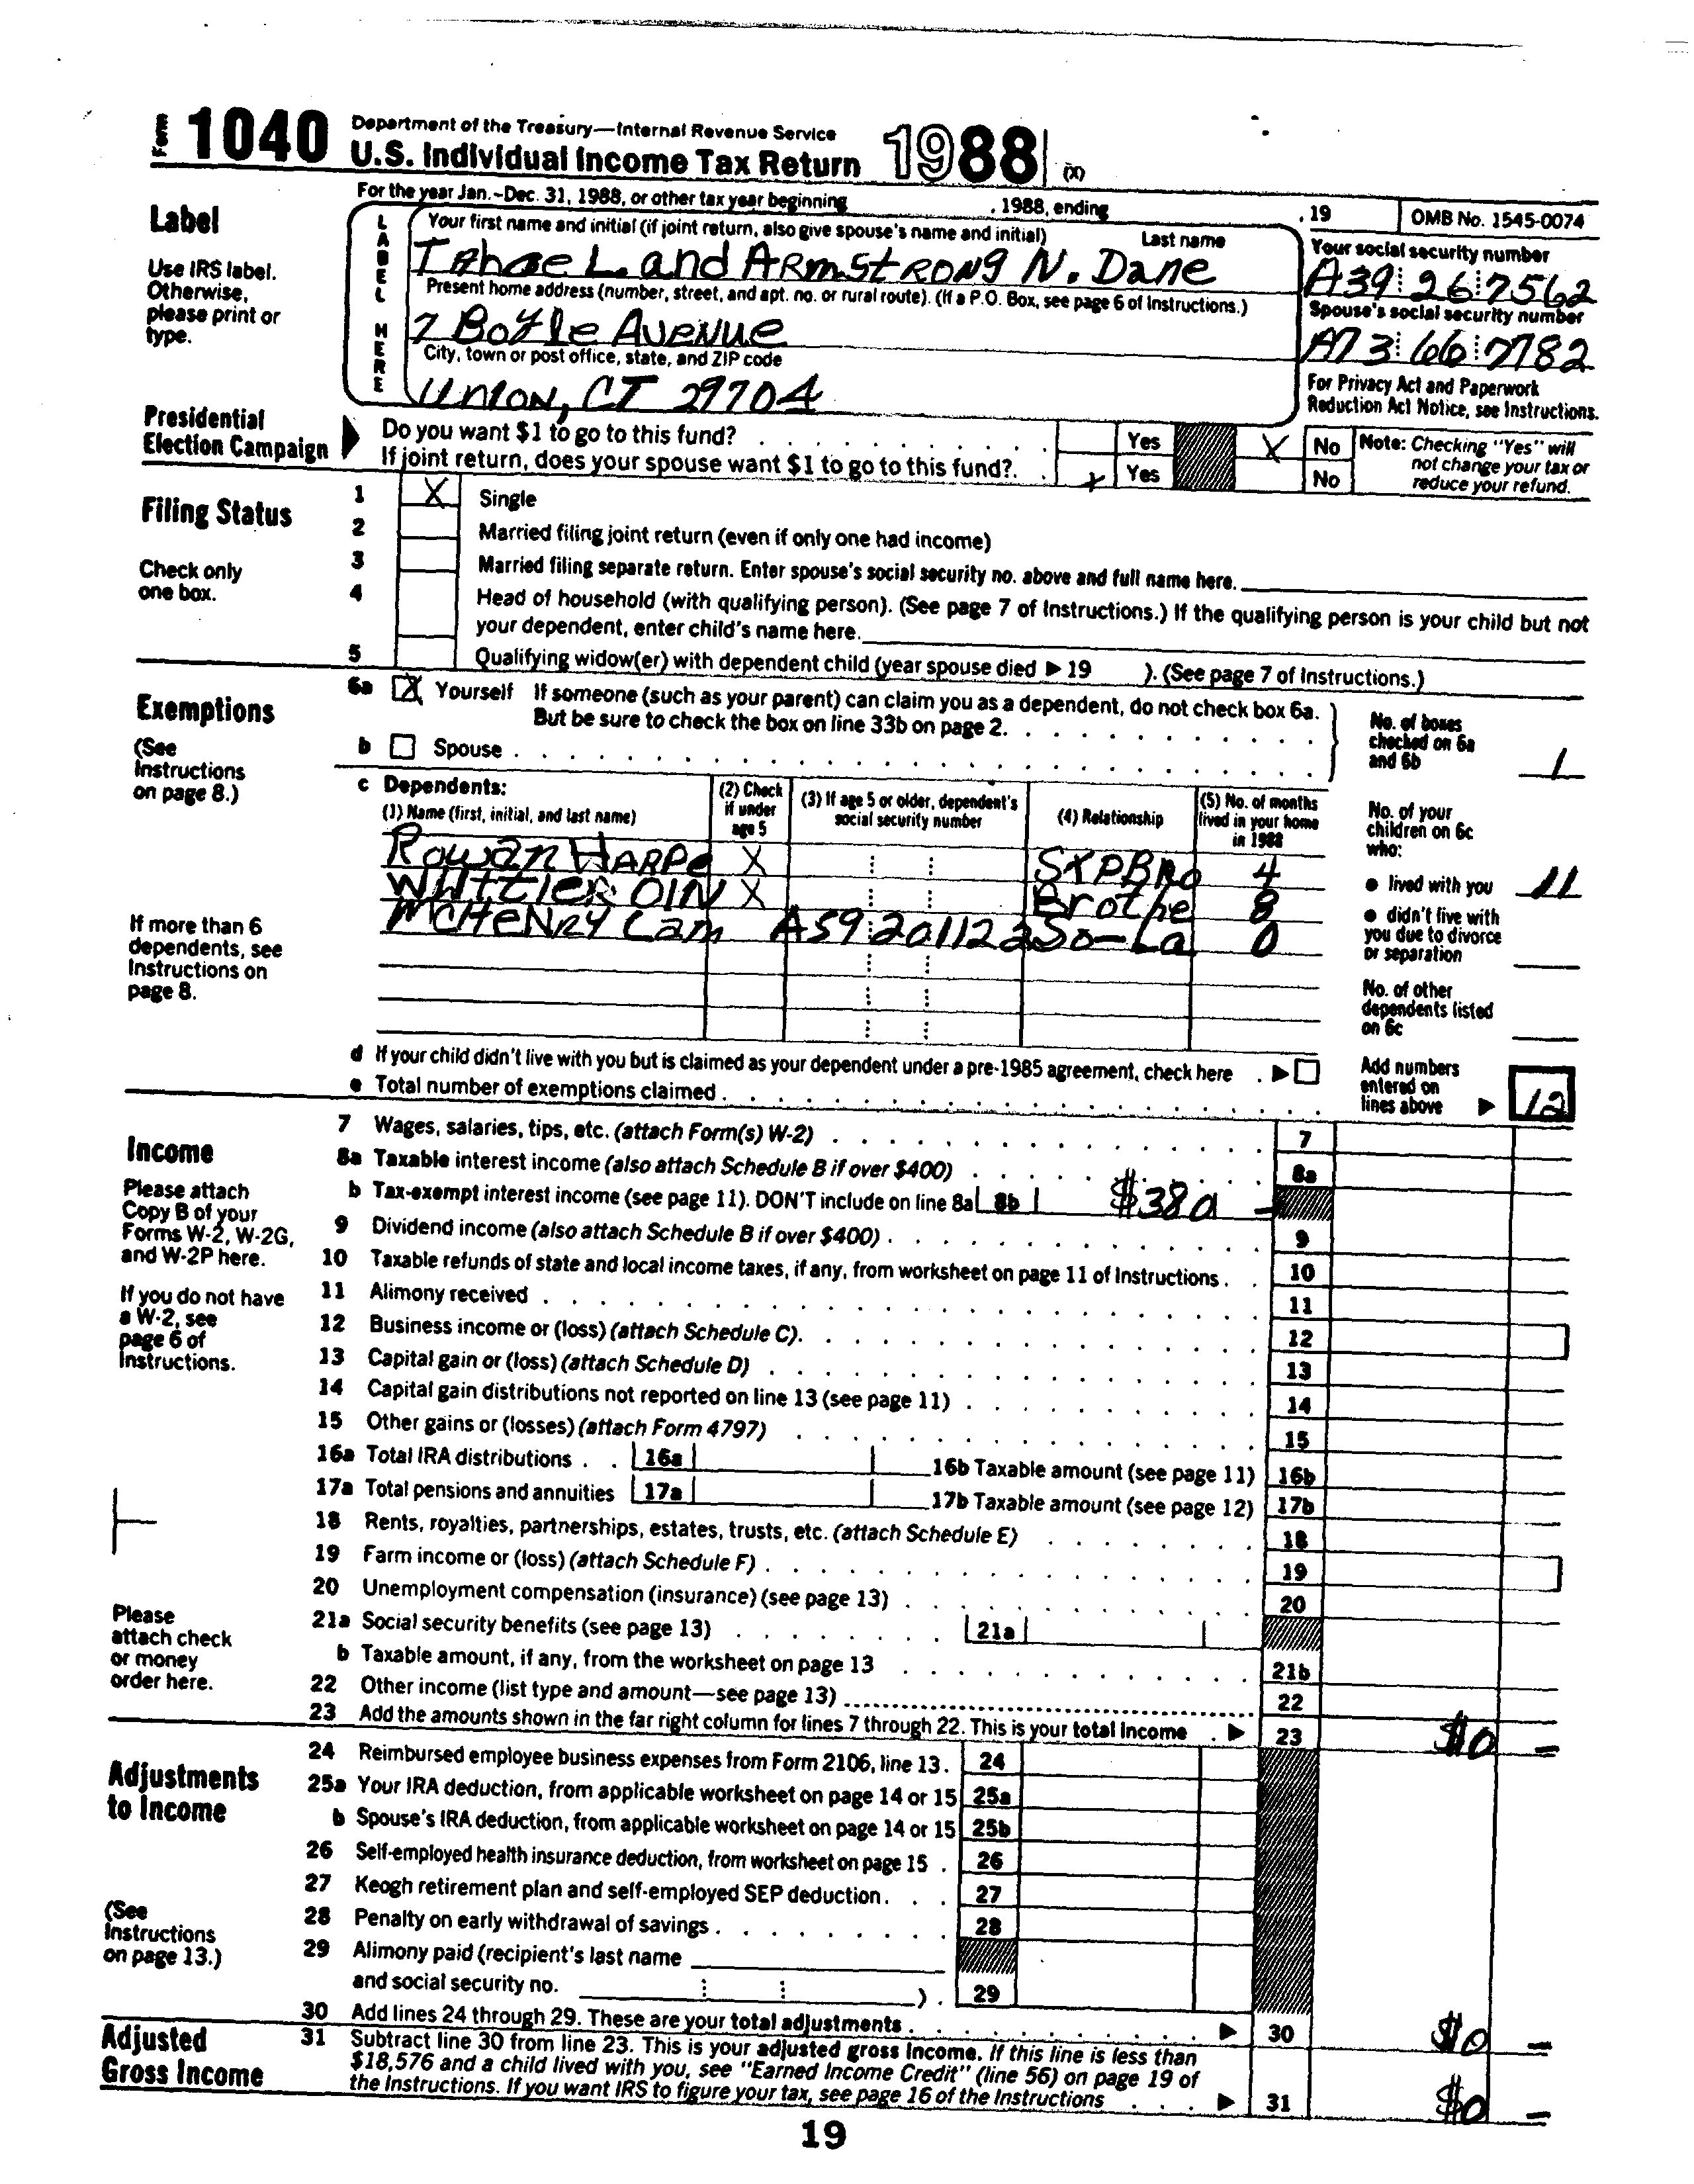 Form 1040 Department of the Treasury—Internal Revenue Service
U.S. Individual Income Tax Return 1988 (X)
For the year Jan.-Dec. 31, 1988, or other tax year beginning , 1988, ending , 19 OMB No. 1545-0074
Label
Use IRS label. Otherwise, please print or type.
LABEL HERE
Your first name and initial (if joint return, also give spouse's name and initial) Last name
L. and ARMSTRONG N. Dane
Your social security number
A39 26 7562
Present home address (number, street, and apt. no. or rural route). (If a P.O. Box, see page 6 of Instructions.)
7 Boyle AVENUE
Spouse's social security number
A73 66 7782
City, town or post office, state, and ZIP code
UNION, CT 29704
For Privacy Act and Paperwork Reduction Act Notice, see Instructions.
Presidential Election Campaign
Do you want $1 to go to this fund? Yes X No
If joint return, does your spouse want $1 to go to this fund? X Yes No
Note: Checking "Yes" will not change your tax or reduce your refund.
Filing Status
Check only one box.
1 X Single
2 Married filing joint return (even if only one had income)
3 Married filing separate return. Enter spouse's social security no. above and full name here.
4 Head of household (with qualifying person). (See page 7 of Instructions.) If the qualifying person is your child but not
your dependent, enter child's name here.
5 Qualifying widow(er) with dependent child (year spouse died ▶ 19 ). (See page 7 of Instructions.)
Exemptions
(See Instructions on page 8.)
6a X Yourself If someone (such as your parent) can claim you as a dependent, do not check box 6a.
But be sure to check the box on line 33b on page 2.
b Spouse
No. of boxes checked on 6a and 6b 1
c Dependents:
(1) Name (first, initial, and last name) (2) Check if under age 5 (3) If age 5 or older, dependent's social security number (4) Relationship (5) No. of months lived in your home in 1988
Rowan HARPE X STPBRO 4
WHITTIER OIN X Brothe 8
MCHENRY Cam A59 20 1122 So-La 0
No. of your children on 6c who:
● lived with you 11
● didn't live with you due to divorce or separation
No. of other dependents listed on 6c
If more than 6 dependents, see Instructions on page 8.
d If your child didn't live with you but is claimed as your dependent under a pre-1985 agreement, check here ▶
e Total number of exemptions claimed
Add numbers entered on lines above ▶ 12
Income
Please attach Copy B of your Forms W-2, W-2G, and W-2P here.
If you do not have a W-2, see page 6 of Instructions.
Please attach check or money order here.
7 Wages, salaries, tips, etc. (attach Form(s) W-2) 7
8a Taxable interest income (also attach Schedule B if over $400) 8a
b Tax-exempt interest income (see page 11). DON'T include on line 8a 8b $380 -
9 Dividend income (also attach Schedule B if over $400) 9
10 Taxable refunds of state and local income taxes, if any, from worksheet on page 11 of Instructions 10
11 Alimony received 11
12 Business income or (loss) (attach Schedule C) 12
13 Capital gain or (loss) (attach Schedule D) 13
14 Capital gain distributions not reported on line 13 (see page 11) 14
15 Other gains or (losses) (attach Form 4797) 15
16a Total IRA distributions 16a 16b Taxable amount (see page 11) 16b
17a Total pensions and annuities 17a 17b Taxable amount (see page 12) 17b
18 Rents, royalties, partnerships, estates, trusts, etc. (attach Schedule E) 18
19 Farm income or (loss) (attach Schedule F) 19
20 Unemployment compensation (insurance) (see page 13) 20
21a Social security benefits (see page 13) 21a
b Taxable amount, if any, from the worksheet on page 13 21b
22 Other income (list type and amount—see page 13) 22
23 Add the amounts shown in the far right column for lines 7 through 22. This is your total income ▶ 23 $0 -
Adjustments to Income
(See Instructions on page 13.)
24 Reimbursed employee business expenses from Form 2106, line 13. 24
25a Your IRA deduction, from applicable worksheet on page 14 or 15 25a
b Spouse's IRA deduction, from applicable worksheet on page 14 or 15 25b
26 Self-employed health insurance deduction, from worksheet on page 15 26
27 Keogh retirement plan and self-employed SEP deduction 27
28 Penalty on early withdrawal of savings 28
29 Alimony paid (recipient's last name
and social security no. ). 29
30 Add lines 24 through 29. These are your total adjustments ▶ 30 $0 -
Adjusted Gross Income
31 Subtract line 30 from line 23. This is your adjusted gross income. If this line is less than
$18,576 and a child lived with you, see "Earned Income Credit" (line 56) on page 19 of
the Instructions. If you want IRS to figure your tax, see page 16 of the Instructions ▶ 31 $0 -
19